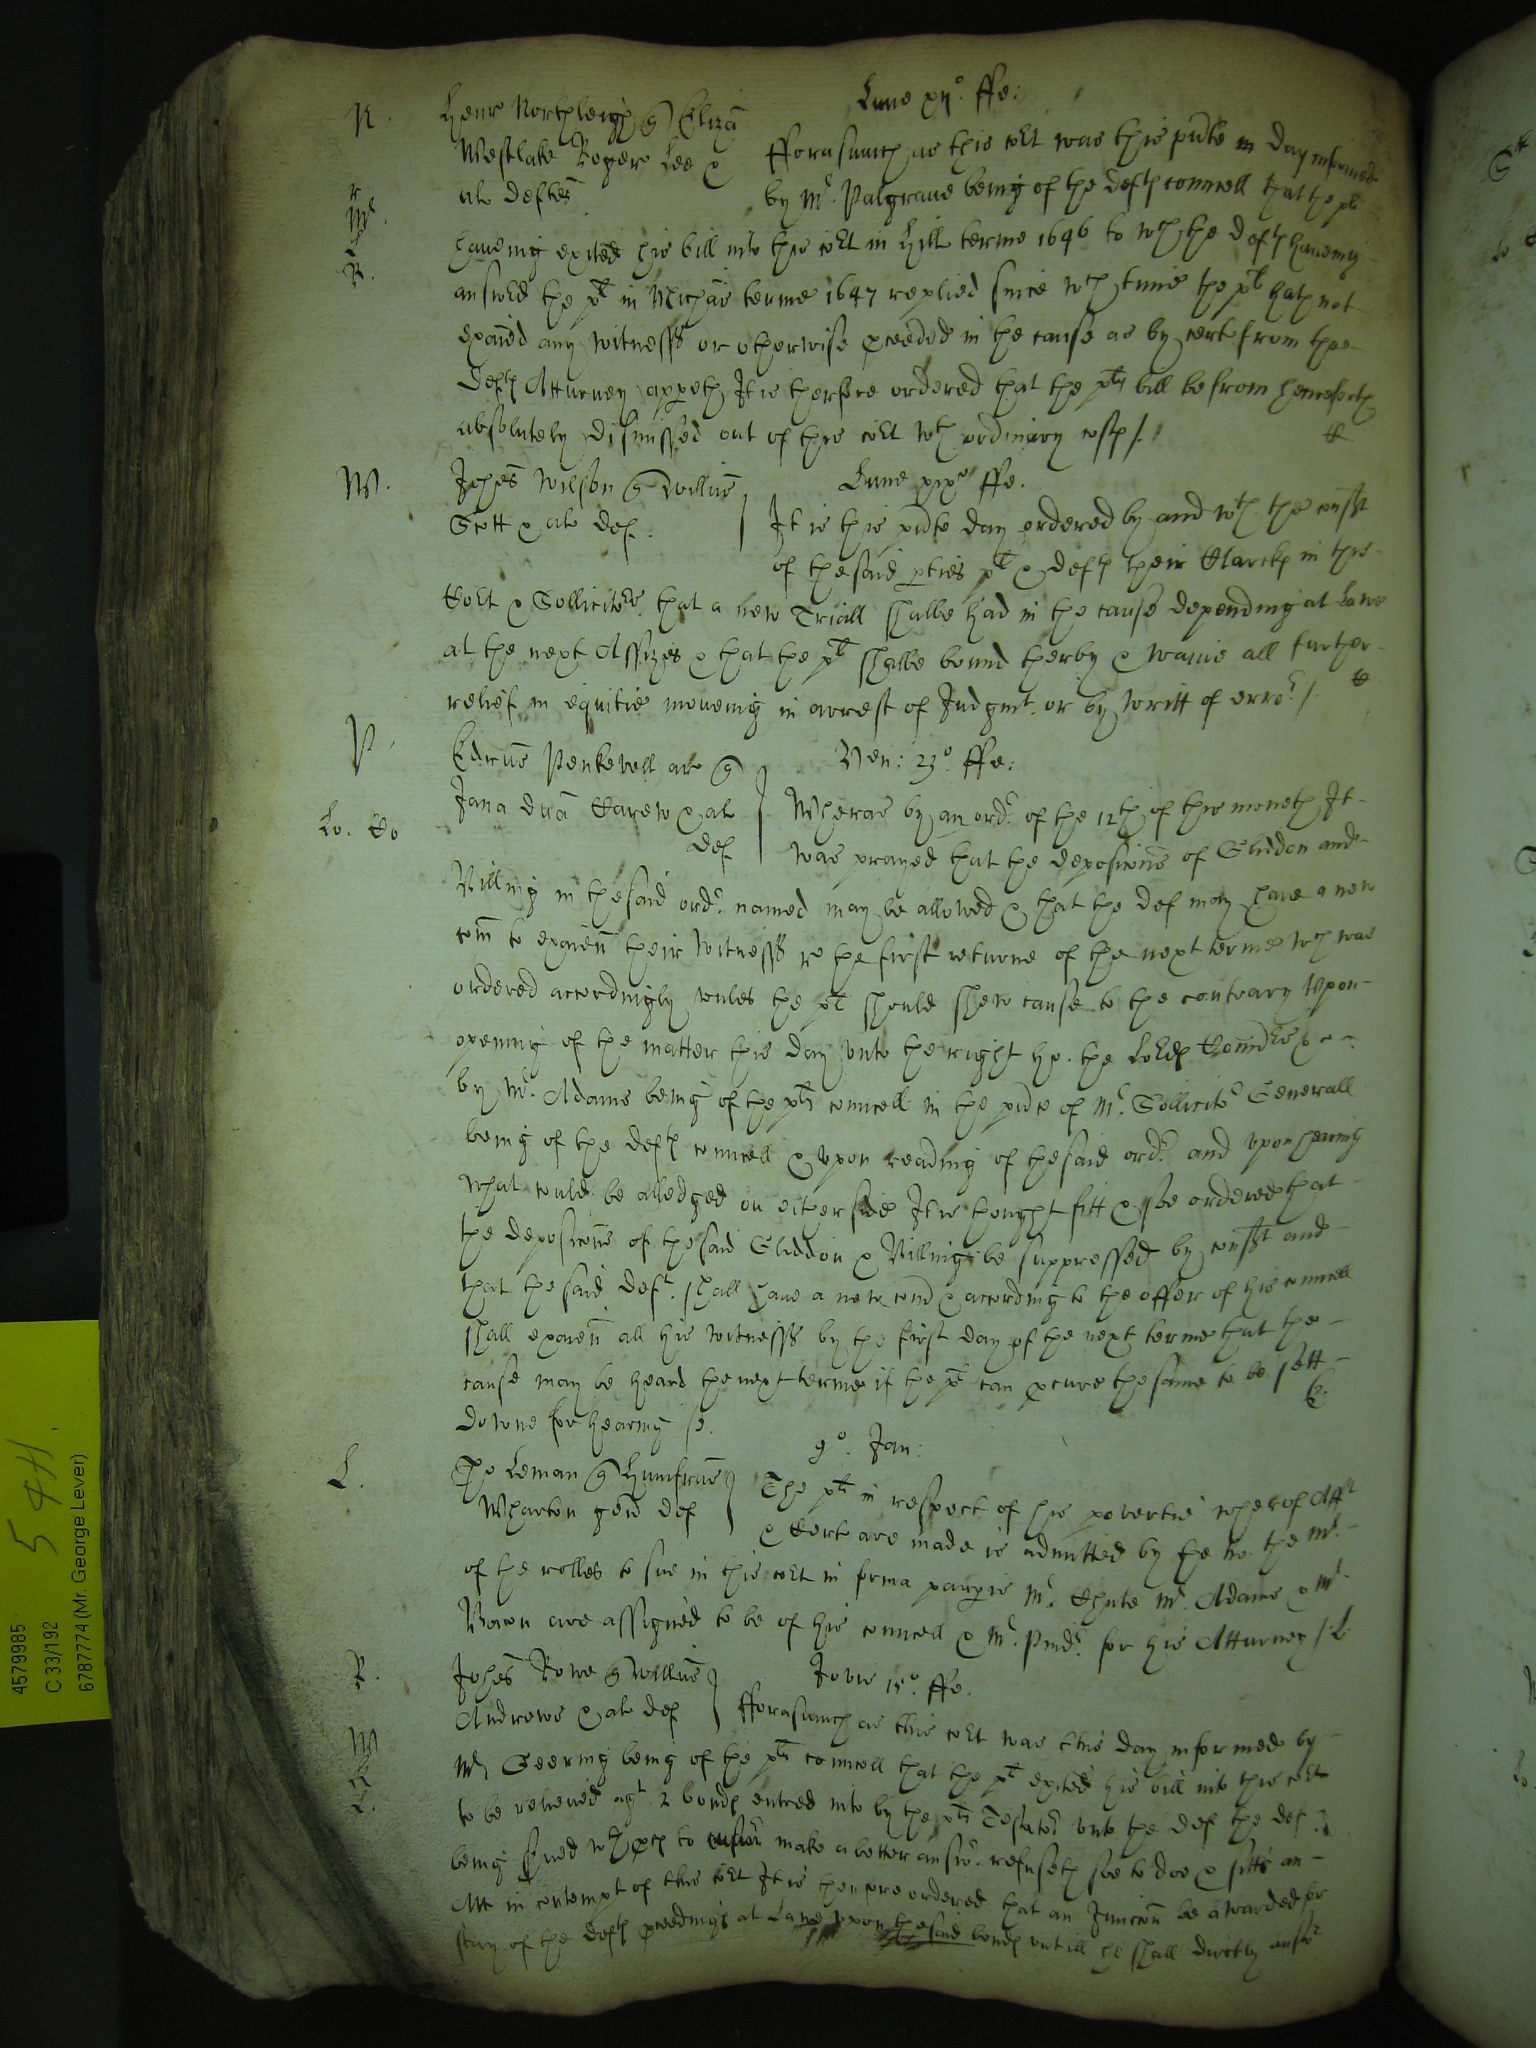 Lune xij.° ffe:
N. Henr Northleigh q Eliza
Westlake Roger Lee & fforasmuch as this cort was this pnte day informed
al deftes by Mr. Palgrave being of the deft councell that the plt
haveing exited his bill into this cort in Hill terme 1646 to wch the deft haveing
answed the plt in Michas terme 1647 replied since wch time the plt hath not
exaied any witnesss or otherwise pceeded in the cause as by cert from the
deft Atturney appeth It is therfore ordered that the plts bill be from henceforth
absolutely dismissed out of this cort wth ordinary costs /.
W. Johes Wilson q Willus Lune xix° ffe.
Scott & als def. It is this pnte day ordered by and wth the consst
of the said pties plt & deft their Clarks in this
Cort & Sollicitors that a new Triall shalbe had in the cause depending at Lawe
at the next Assizes & that the plt shalbe bound therby & waive all further
relief in equitie moveing in arrest of Judgmt. or by writt of error /.
P. Edrus Penkevell ar q Ven: 23° ffe:
Jana dna Carew & al Wheras by an ordr. of the 12th of this moneth It
Lo. Co def was prayed that the deposicons of Gliddon and
Billing in the said ordr. named may be allowed & that the def may have a new
com to exaien their witnesss re the first returne of the next terme wch was
ordered accordingly unles the plt should shew cause to the contrary Upon
opening of the matter this day unto the right ho. the Lords Comrs &c
by Mr. Adams being of the plts councell in the pnce of Mr. Sollicitor Generall
being of the deft councell & upon reading of the said ordr. and upon heareing
what could be alledged on either side It is thought fitt & soe ordered that
the deposicons of the said Gliddon & Billing be suppressed by consst and
that the said deft. shall have a new com & according to the offer of his councell
shall exaien all his witnesss by the first day of the next terme that the
cause may be heard the next terme if the plt can pcure the same to be sett
downe for hearing /.
9°. Jan:
L. Tho Leman q Humfrus The plt in respect of his povertie wherof Afft
Wharton gen def & Cert are made is admitted by the ho. the Mr.
of the rolles to sue in this cort in forma paupis Mr. Chute Mr. Adams & Mr.
Bacon are assigned to be of his councell & Mr. Pindr. for his Atturney /.
R. Johes Rowe q Willus Jovis 15°. ffe.
Andrews & als def fforasmuch as this cort was this day informed by
Mr Geering being of the plts councell that the plt exited his bill into this cort
to be relieved agt 2 bonds entred into by the plts Testator unto the def the def
being served wth pces to answer make a better answ. refuseth soe to doe & sitts an
Att in contempt of this cort It is therfore ordered that an Juncion be awarded for
stay of the deft pceedings at Lawe upon the said bonds untill he shall directly answr.